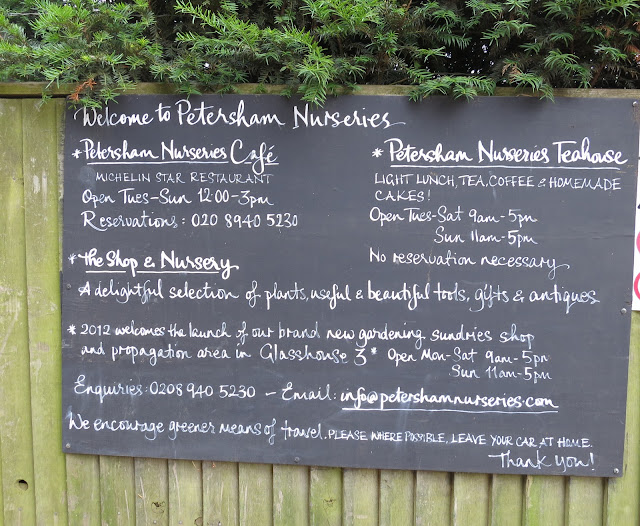 Welcome to Petersham Nurseries
* Petersham Nurseries Café
MICHELIN STAR RESTAURANT
Open Tues-Sun 12:00-3pm
Reservations: 020 8940 5230
* Petersham Nurseries Teahouse
LIGHT LUNCH, TEA, COFFEE & HOMEMADE
CAKES!
Open Tues-Sat 9am-5pm
Sun 11am-5pm
No reservation necessary
* the Shop & Nursery
A delightful selection of plants, useful & beautiful tools, gifts & antiques
* 2012 welcomes the launch of our brand new gardening sundries shop
and propagation area in Glasshouse 3* Open Mon-Sat 9am-5pm
Sun 11am-5pm
Enquiries: 0208 940 5230 - Email: info@petershamnurseries.com
We encourage greener means of travel. PLEASE WHERE POSSIBLE, LEAVE YOUR CAR AT HOME.
Thank you!